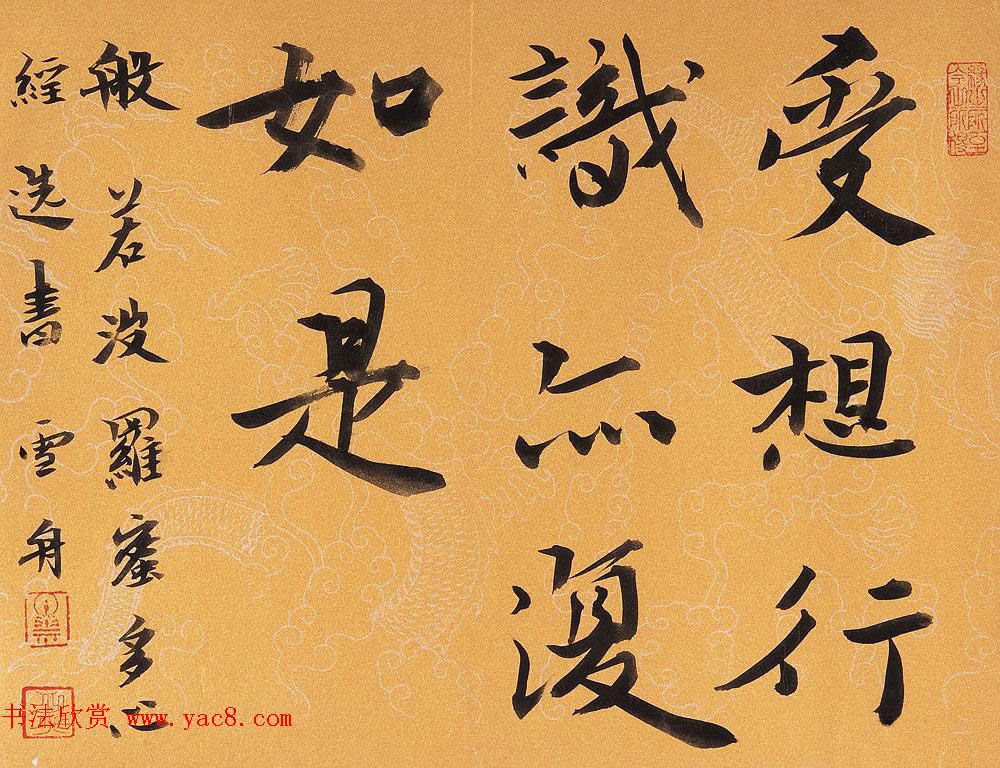 受想行
識亦復
如是
般若波羅蜜多心
經選書雪舟
书法欣赏 www.yac8.com